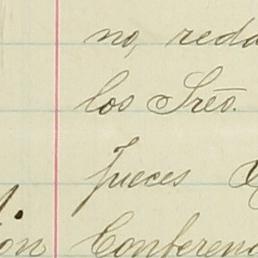 no, reda
los Sres.
Jueces
ón Conferenc